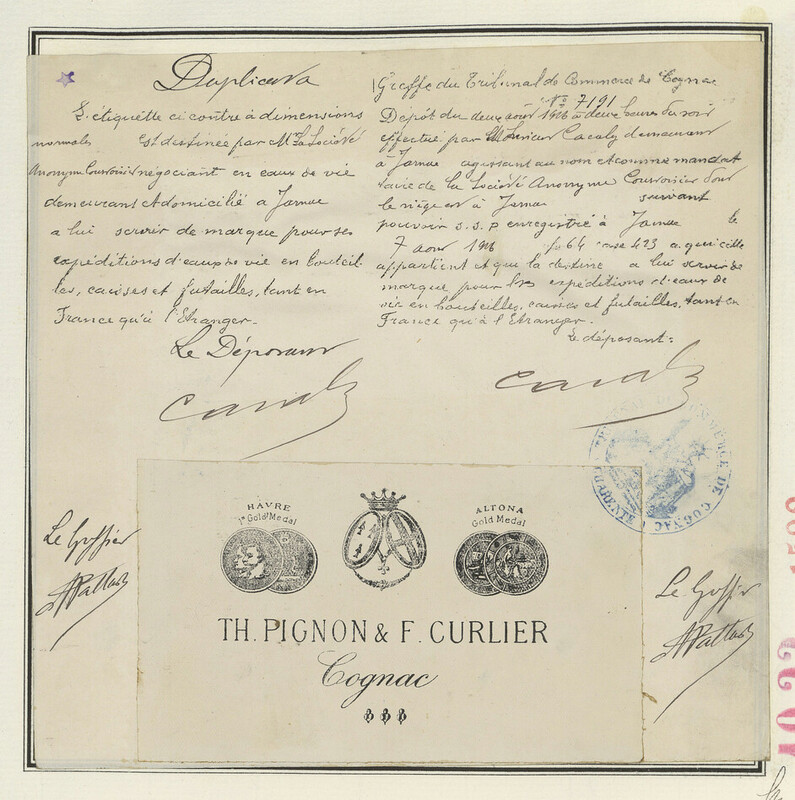 Duplicata
L'étiquette ci contre à dimensions
normales est destinée par Mr La Société
Anonyme Courvoisier négociant en eaux de vie
demeurant et domicilié à Jarnac
a lui servir de marque pour ses
expéditions d'eaux de vie en bouteil
les, caisses et futailles, tant en
France qu'à l'Etranger.
Le Déposant
Greffe du Tribunal de Commerce de Cognac
No 7191
Dépôt du deux aout 1916 à deux heures du soir
effectué par demeurant
à Jarnac agissant au nom et comme mandat
taire de la Société Anonyme Courvoisier dont
le siège est à Jarnac suivant
pouvoir s.s.p enregistré à Jarnac le
7 aout 1916 fo 64 case 423 a qui elle
appartient et que la destine a lui servir de
marque pour les expéditions d'eaux de
vie en bouteilles, caisses et futailles, tant en
France qu'à l'Etranger.
Le déposant:
TRIBUNAL DE COMMERCE DE COGNAC
CHARENTE
Le Greffier
HAVRE
1st Gold Medal
ALTONA
Gold Medal
TH. PIGNON & F. CURLIER
Cognac
Le Greffier